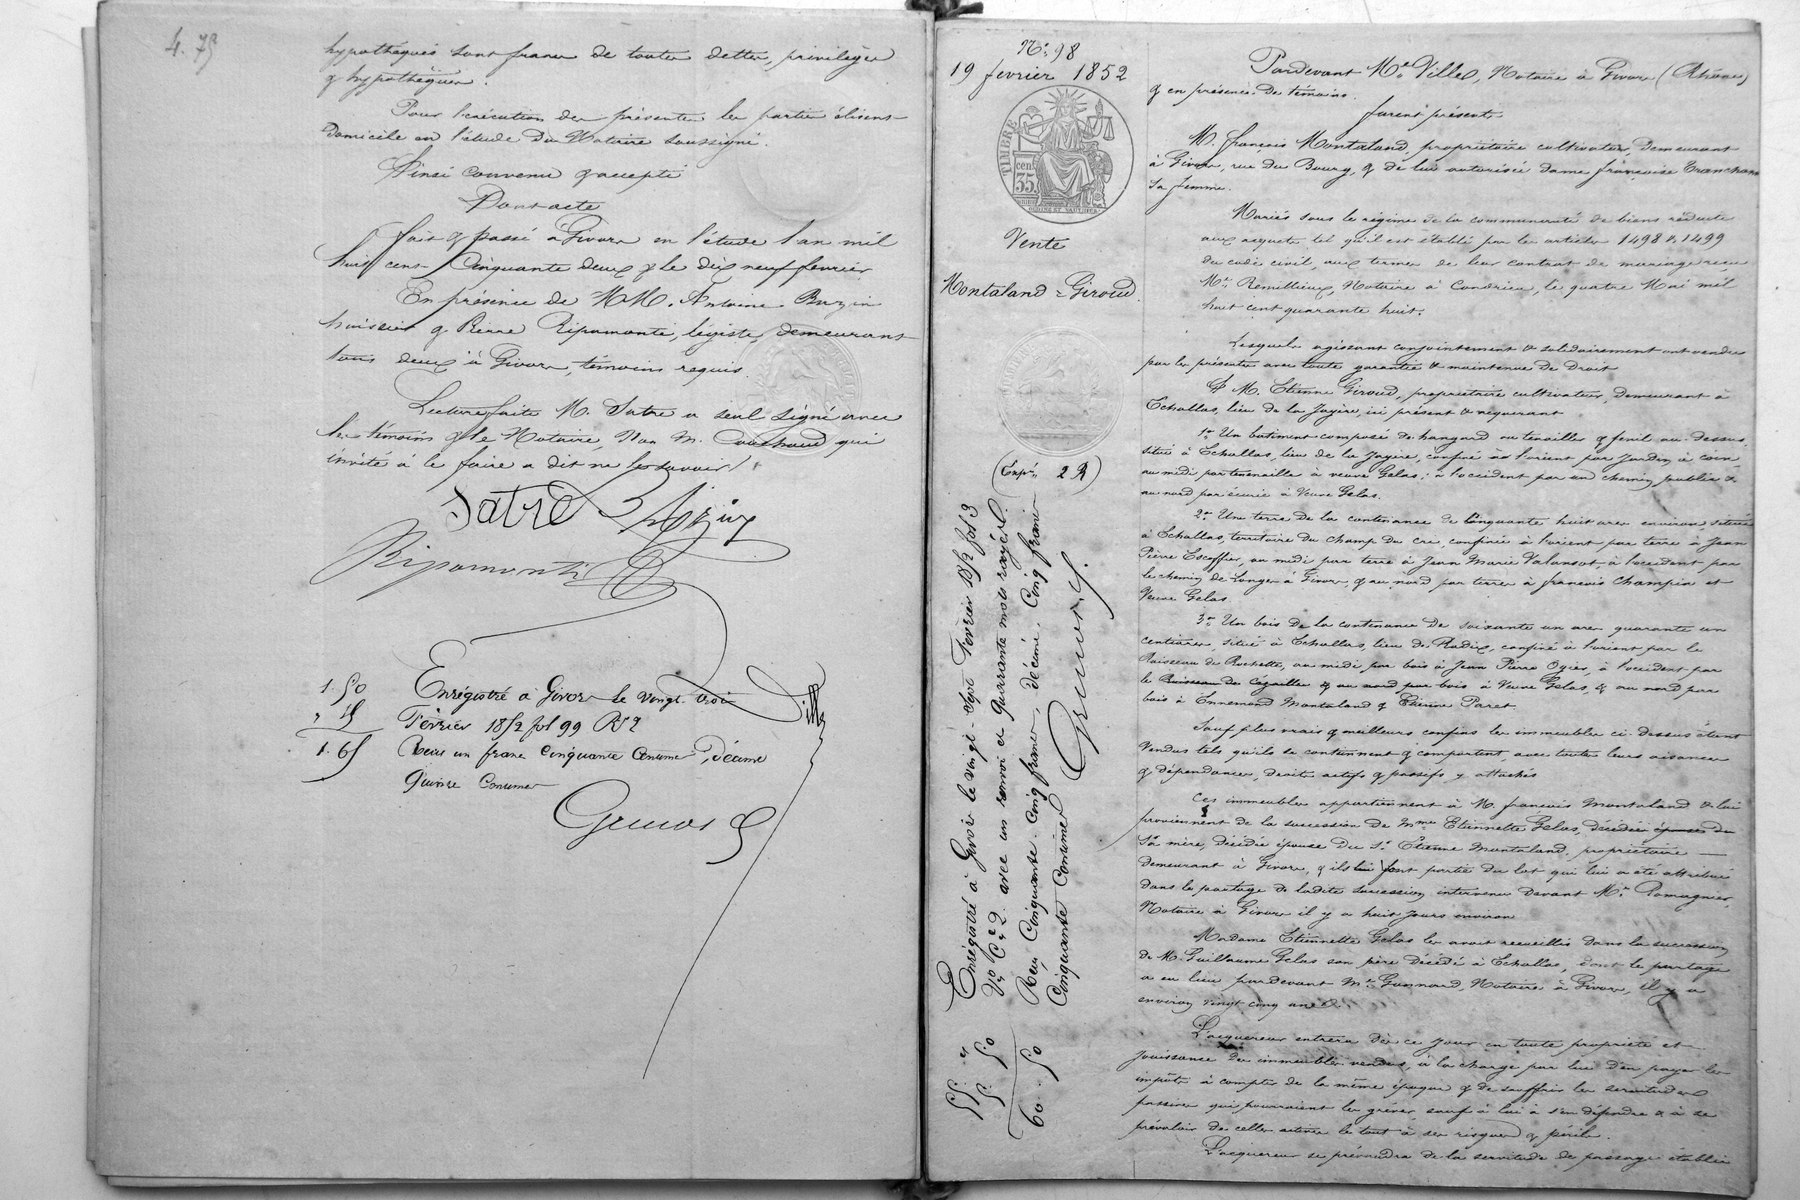 4. 75
hypothéqués sont francs de toutes dettes, privilèges
& hypothèques.
Pour l'exécution des présentes les parties élisent
Domicile en l'étude du Notaire soussigné.
Ainsi convenu & accepté
Dont acte
fait & passé à Givors en l'étude l'an mil
huit cent Cinquante deux & le dix neuf février
En présence de MM. Antoine Buzin
huissier & Pierre Ripamonti, légiste, demeurant
tous deux à Givors, témoins requis.
Lecture faite M. Satre a seul signé avec
les témoins & le Notaire, Non M. qui
invité à le faire a dit ne le savoir /.
Satre
Ripamonti
Ville
1. 50
" 15
1. 65
Enrégistré à Givors le vingt trois
Février 1852 fol 99
Reçu un franc Cinquante Centimes, Décime
Quinze Centimes
N° 98
19 février 1852
TIMBRE
cent
35
Vente
Montaland = Giroud
(Expn 2 R)
Enrégistré à Givors le vingt-sept Février 1852 fol 3
Vo C 2. avec un renvoi et quarante mots rayés.
Reçu Cinquante-Cinq francs, décime. Cinq francs
Cinquante Centimes
55. "
5. 50
60. 50
Pardevant Me Ville, Notaire à Givors (Rhône)
& en présence de témoins.
furent présents
M. françois Montaland, propriétaire cultivateur, demeurant
à Givors, rue du Bourg, & de lui autorisée dame françoise Tranchant
sa femme.
Mariés sous le régime de la communauté de biens réduite
aux acquets tel qu'il est établi par les articles 1498 & 1499
du code civil, aux termes de leur contrat de mariage reçu
Me Remillieux, Notaire à Condrieu, le quatre Mai mil
huit cent quarante huit.
Lesquels agissant conjointement & solidairement ont vendu
par les présentes avec toute garantie & maintenue de droit
A M. Etienne Giroud, propriétaire cultivateur, demeurant à
Echallas, lieu de la Jayère, ici présent & réquerant
1° Un batiment composé de hangard ou tenailler & fenil au dessus
situé à Echallas, lieu de la Jayère, confiné à l'orient par Jardin à
au midi par tenaille à veuve Gelas; à l'occident par un chemin public &
au nord par écurie à Veuve Gelas.
2° Une terre de la contenance de Cinquante huit ares environ située
à Echallas, territoire du champ du cre, confinée à l'orient par terre à Jean
Pierre Escoffier, au midi par terre à Jean Marie Valansot, à l'occident par
le chemin de Longes à Givors, & au nord par terres à françois Champin et
Veuve Gelas
3° Un bois de la contenance de soixante un ares quarante un
centiares, situé à Echallas, lieu de Radix, confiné à l'orient par le
Ruisseau de Rochette, au midi par bois à Jean Pierre Ogier, à l'occident par
le Ruisseau de & au nord par bois à Veuve Gelas, & au nord par
bois à Ennemond Montaland & Etienne Paret.
Sauf plus vrais & meilleurs confins les immeubles ci-dessus étant
Vendus tels qu'ils se contiennent & comportent, avec toutes leurs aisances
& dépendances, droits actifs & passifs y attachés
Ces immeubles appartiennent à M. françois Montaland & lui
proviennent de la succession de Mme Etiennette Gelas, décédée épouse du
Sa mère, décédée épouse du Sr Etienne Montaland, propriétaire
demeurant à Givors, & ils font partie du lot qui lui a été attribué
dans le partage de ladite succession intervenu devant Me Romagnier
Notaire à Givors il y a huit jours environ
Madame Etiennette Gelas les avait recueillis dans la succession
de M. Guillaume Gelas son père décédé à Echallas, dont le partage
a eu lieu pardevant Me Gannard, Notaire à Givors, il y a
environ vingt-cinq ans.
L'acquereur entrera dès ce jour en toute propriété et
jouissance des immeubles vendus, à la charge par lui d'en payer les
impôts à compter de la même époque & de souffrir les servitudes
passives qui pourraient les gréver sauf à lui à s'en défendre & à se
prévaloir de celles actives le tout à ses risques & périls.
L'acquereur se prévaudra de la servitude de passage établie